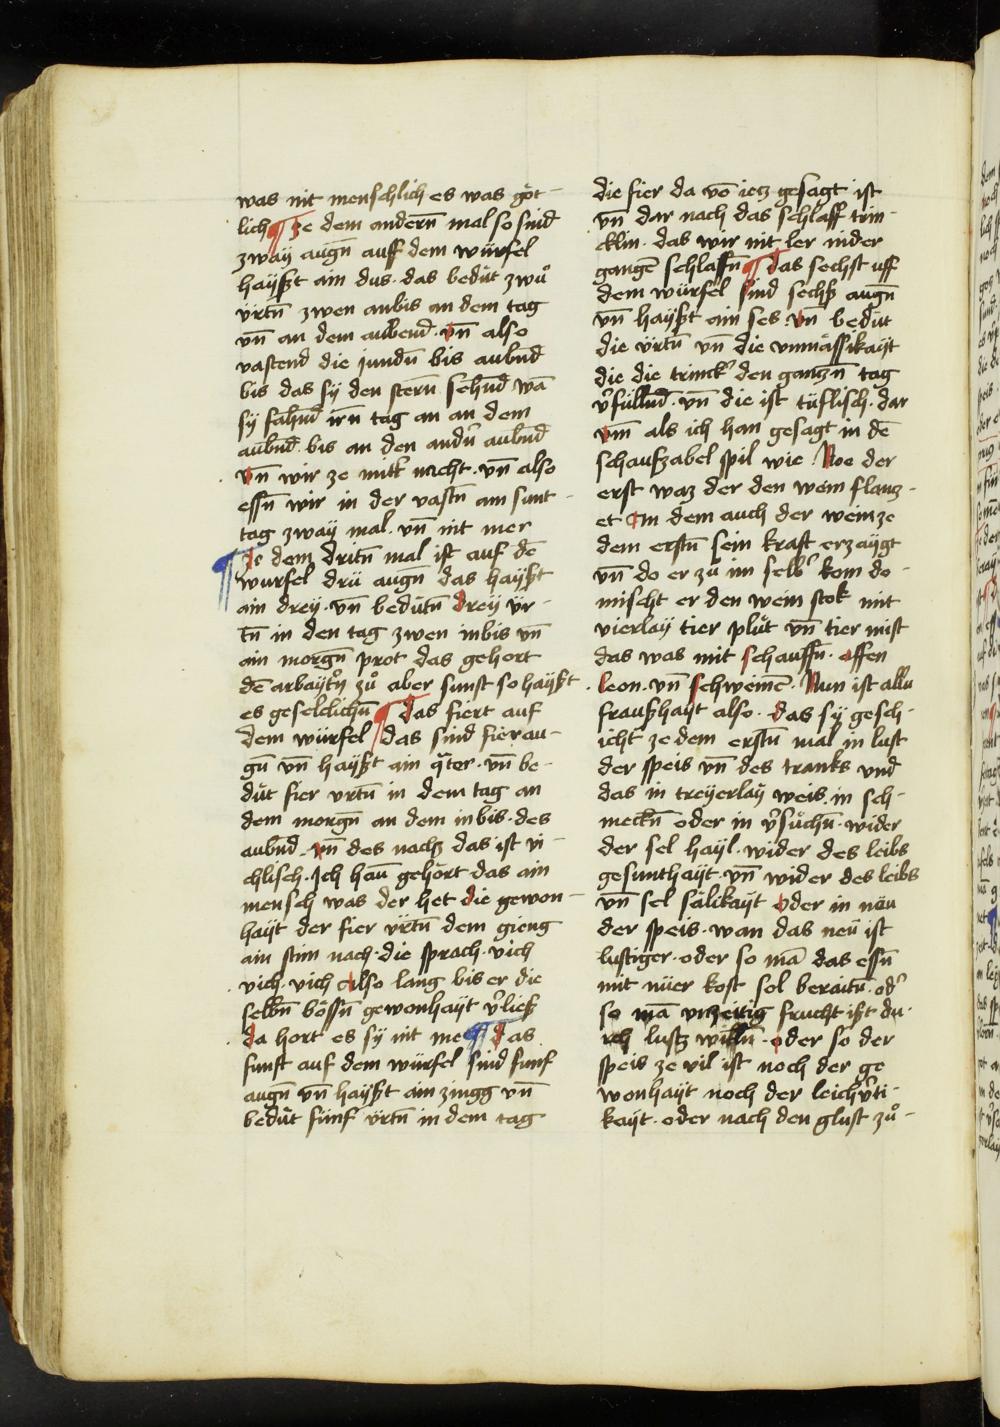 was nit menschlich es was göt-
lich ¶ Ze dem andern̄ mal so sind
zwaÿ augn̄ auff dem würfel
haÿßt ain dus · das bedüt zwuͦ
ürtn̄ zwen anbis an dem tag
vn̄ an dem aubend · Vn̄ also
vastend die jundn̄ bis aubn̄d
bis das sÿ den stern̄ sehn̄d wā
sÿ fahn̄d irn̄ tag an an dem
aubn̄d bis an den andn̄ aubn̄d
Vn̄ wir ze mitt nacht · vn̄ also
essn̄ wir in der vastn̄ am sunt-
tag zwaÿ mal · vn̄ nit mer
¶ Ze dem dritn̄ mal ist auf dē
würfel drü augn̄ das haÿßt
ain dreÿ · vn̄ bedütn̄ dreÿ ür-
tn̄ in den tag zwen inbis vn̄
ain morgn̄ prot das gehort
dē arbaÿtn̄ zuͦ aber sunst so haÿßt
es geselclichn̄ ¶ Das fiert auf
dem würfel das sind fierau-
gn̄ vn̄ haÿßt ain qter · vn̄ be-
düt fier vrtn̄ in dem tag an
dem morgn̄ an dem inbis · des
aubn̄d · vn̄ des nachz das ist vi-
chlisch · Ich haū gehört das ain
mensch was der het die gewon-
haÿt der fier ürtn̄ dem gieng
ain stim nach · die sprach · vich
vich · vich Also lang bis er die
selbn̄ bössn̄ gewonhaÿt v̓ließ
da hort es sÿ nit me ¶ Das
funft auf dem würfel sind funf
augn̄ vn̄ haÿßt ain zingg vn̄
bedüt fünf ürtn̄ in dem tag
die fier da vō ietz gesagt ist
vn̄ dar nach das schlaff trin-
cklin · das wir nit ler nider
gangē schlaffn̄ ¶ Das sechst uff
dem würfel sind sechß augn̄
vn̄ haÿßt ain ses · Vn̄ bedüt
die ürtn̄ vn̄ die vnmässikaÿt
die die trinck̓ den ganzn̄ tag
v̓fülln̄d · vn̄ die ist tüflisch · dar
vm̄ als ich han gesagt in dē
schaufzabel spil wie · Noe der
erst waz der den wein flanz-
et Im dem auch der wein ze
dem erstn̄ sein kraft erzaÿgt
vn̄ do er zuͦ im selb̓ kom do-
mischt er den wein stok mit
vierlaÿ tier pluͦt vn̄ tier mist
das was mit schauffn̄ · Affen
leon · vn̄ schweinē · Nun ist allu
fraußhaÿt also · das sÿ gesch-
icht ze dem erstn̄ mal in lust
der speis vn̄ des tranks vnd
das in treÿerlaÿ weis · in sch-
meckn̄ oder in v̓suͦchn̄ · wider
der sel haÿl · wider des leibs
gesunthaÿt · vn̄ wider des leibs
vn̄ sel sälikaÿt Oder in näu
der speis · wan das neü ist
lustiger · oder so mā das essn̄
mit nüer kost sol beraitn̄ · od̓
so mā vnzeitig frucht ißt du-
rch lustz willn̄ · Oder so der
speis ze vil ist noch der ge
wonhaÿt noch der leichv̓ti-
kaÿt · oder nach den glust zuͦ-